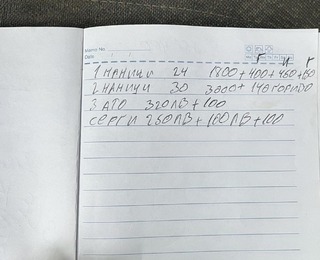 Memo No.
Date
Г И Г
1 МАНИЦИ 24 1800+400+460+150
2 НАНИЦИ 30 3000+
3 АТО 320ЛВ+100
СЕРГИ 250ЛВ+100ЛВ+100